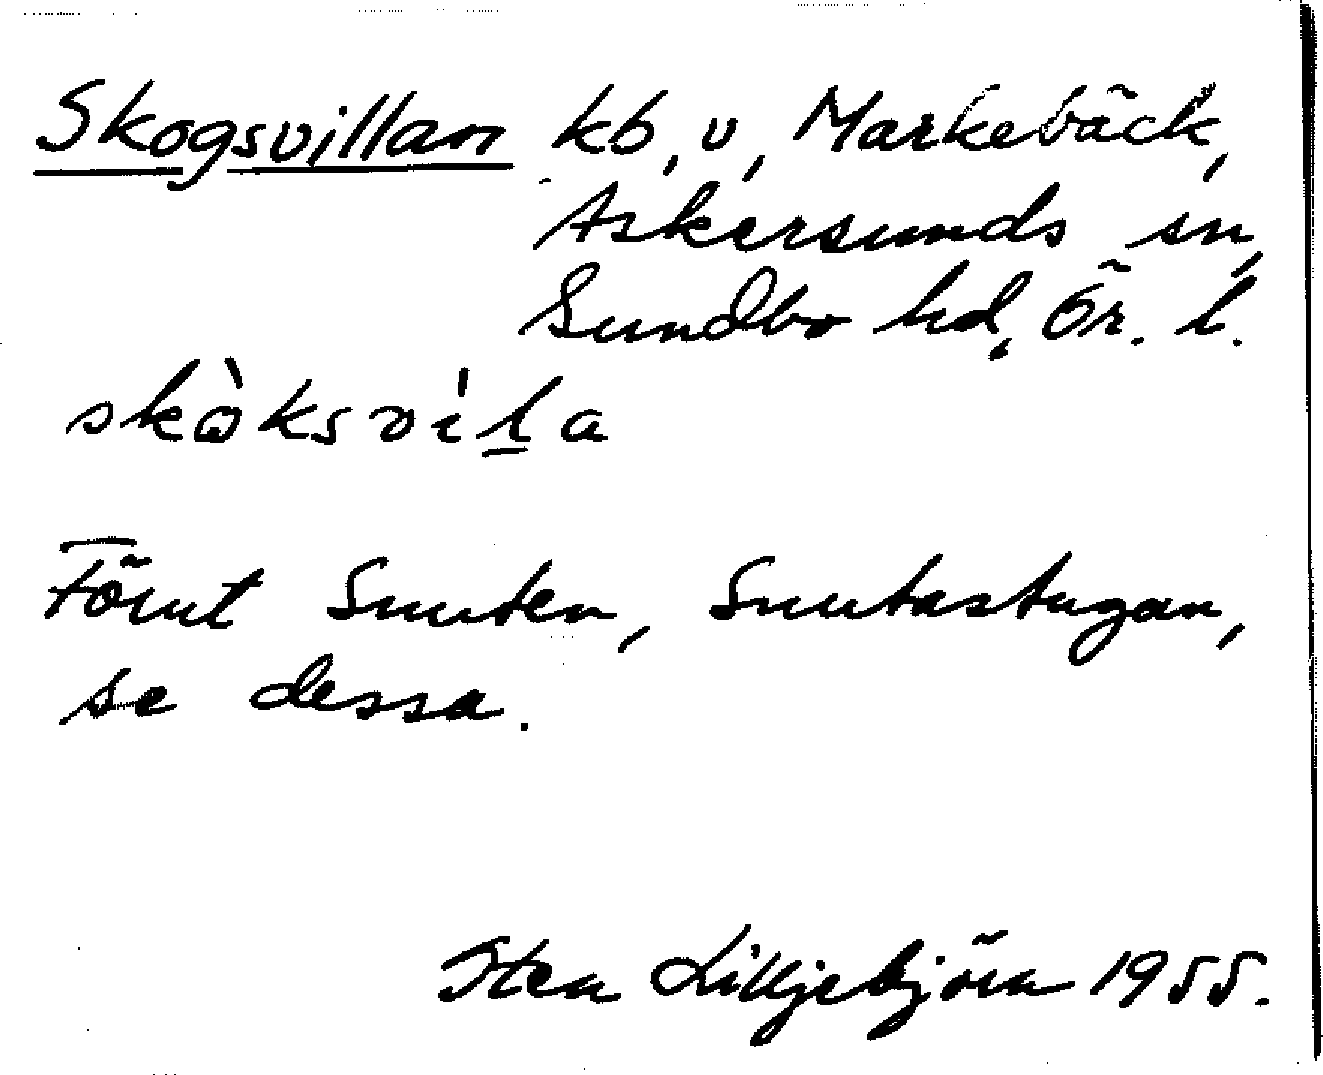 Skogsvillan kb, v, Markebäck,
Askersunds sn,
Sundbo hd, Ör. l.
skò̀ksvi̍l̲a
Förut Snuten, Snutastugan,
se dessa.
Sten Lilljebjörn 1955.